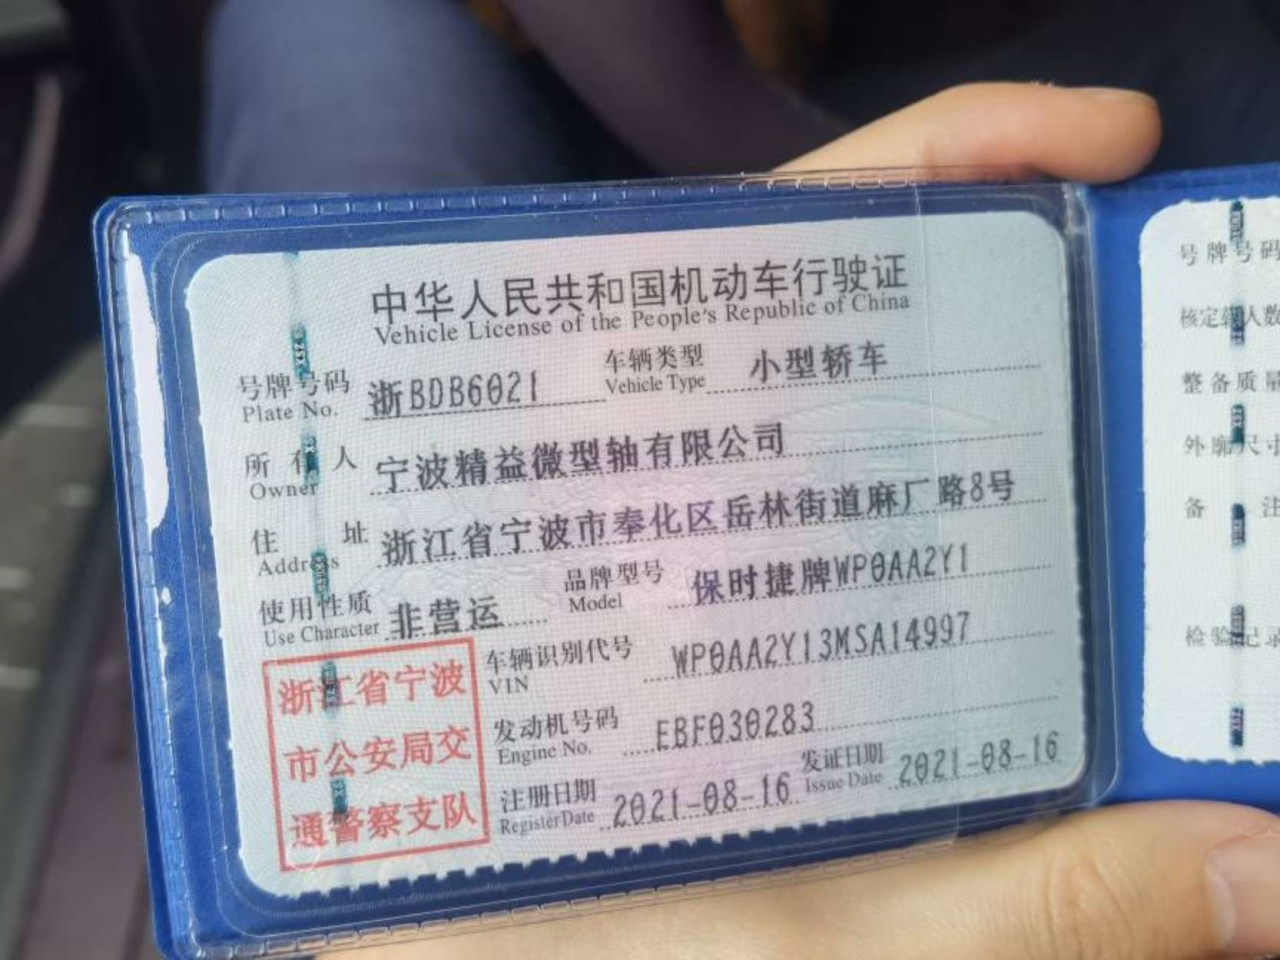 中华人民共和国机动车行驶证
Vehicle License of the People's Republic of China
号牌号码 浙BDB6021 车辆类型 小型轿车
Plate No. Vehicle Type
所有人 宁波精益微型轴有限公司
Owner
住址 浙江省宁波市奉化区岳林街道麻厂路8号
Address
使用性质 非营运 品牌型号 保时捷牌WP0AA2Y1
Use Character Model
车辆识别代号 WP0AA2Y13MSA14997
VIN
发动机号码 EBF030283
Engine No.
注册日期 2021-08-16 发证日期 2021-08-16
Register Date Issue Date
浙江省宁波
市公安局交
通警察支队
号牌号码
核定载人数
整备质量
外廓尺寸
备注
检验记录